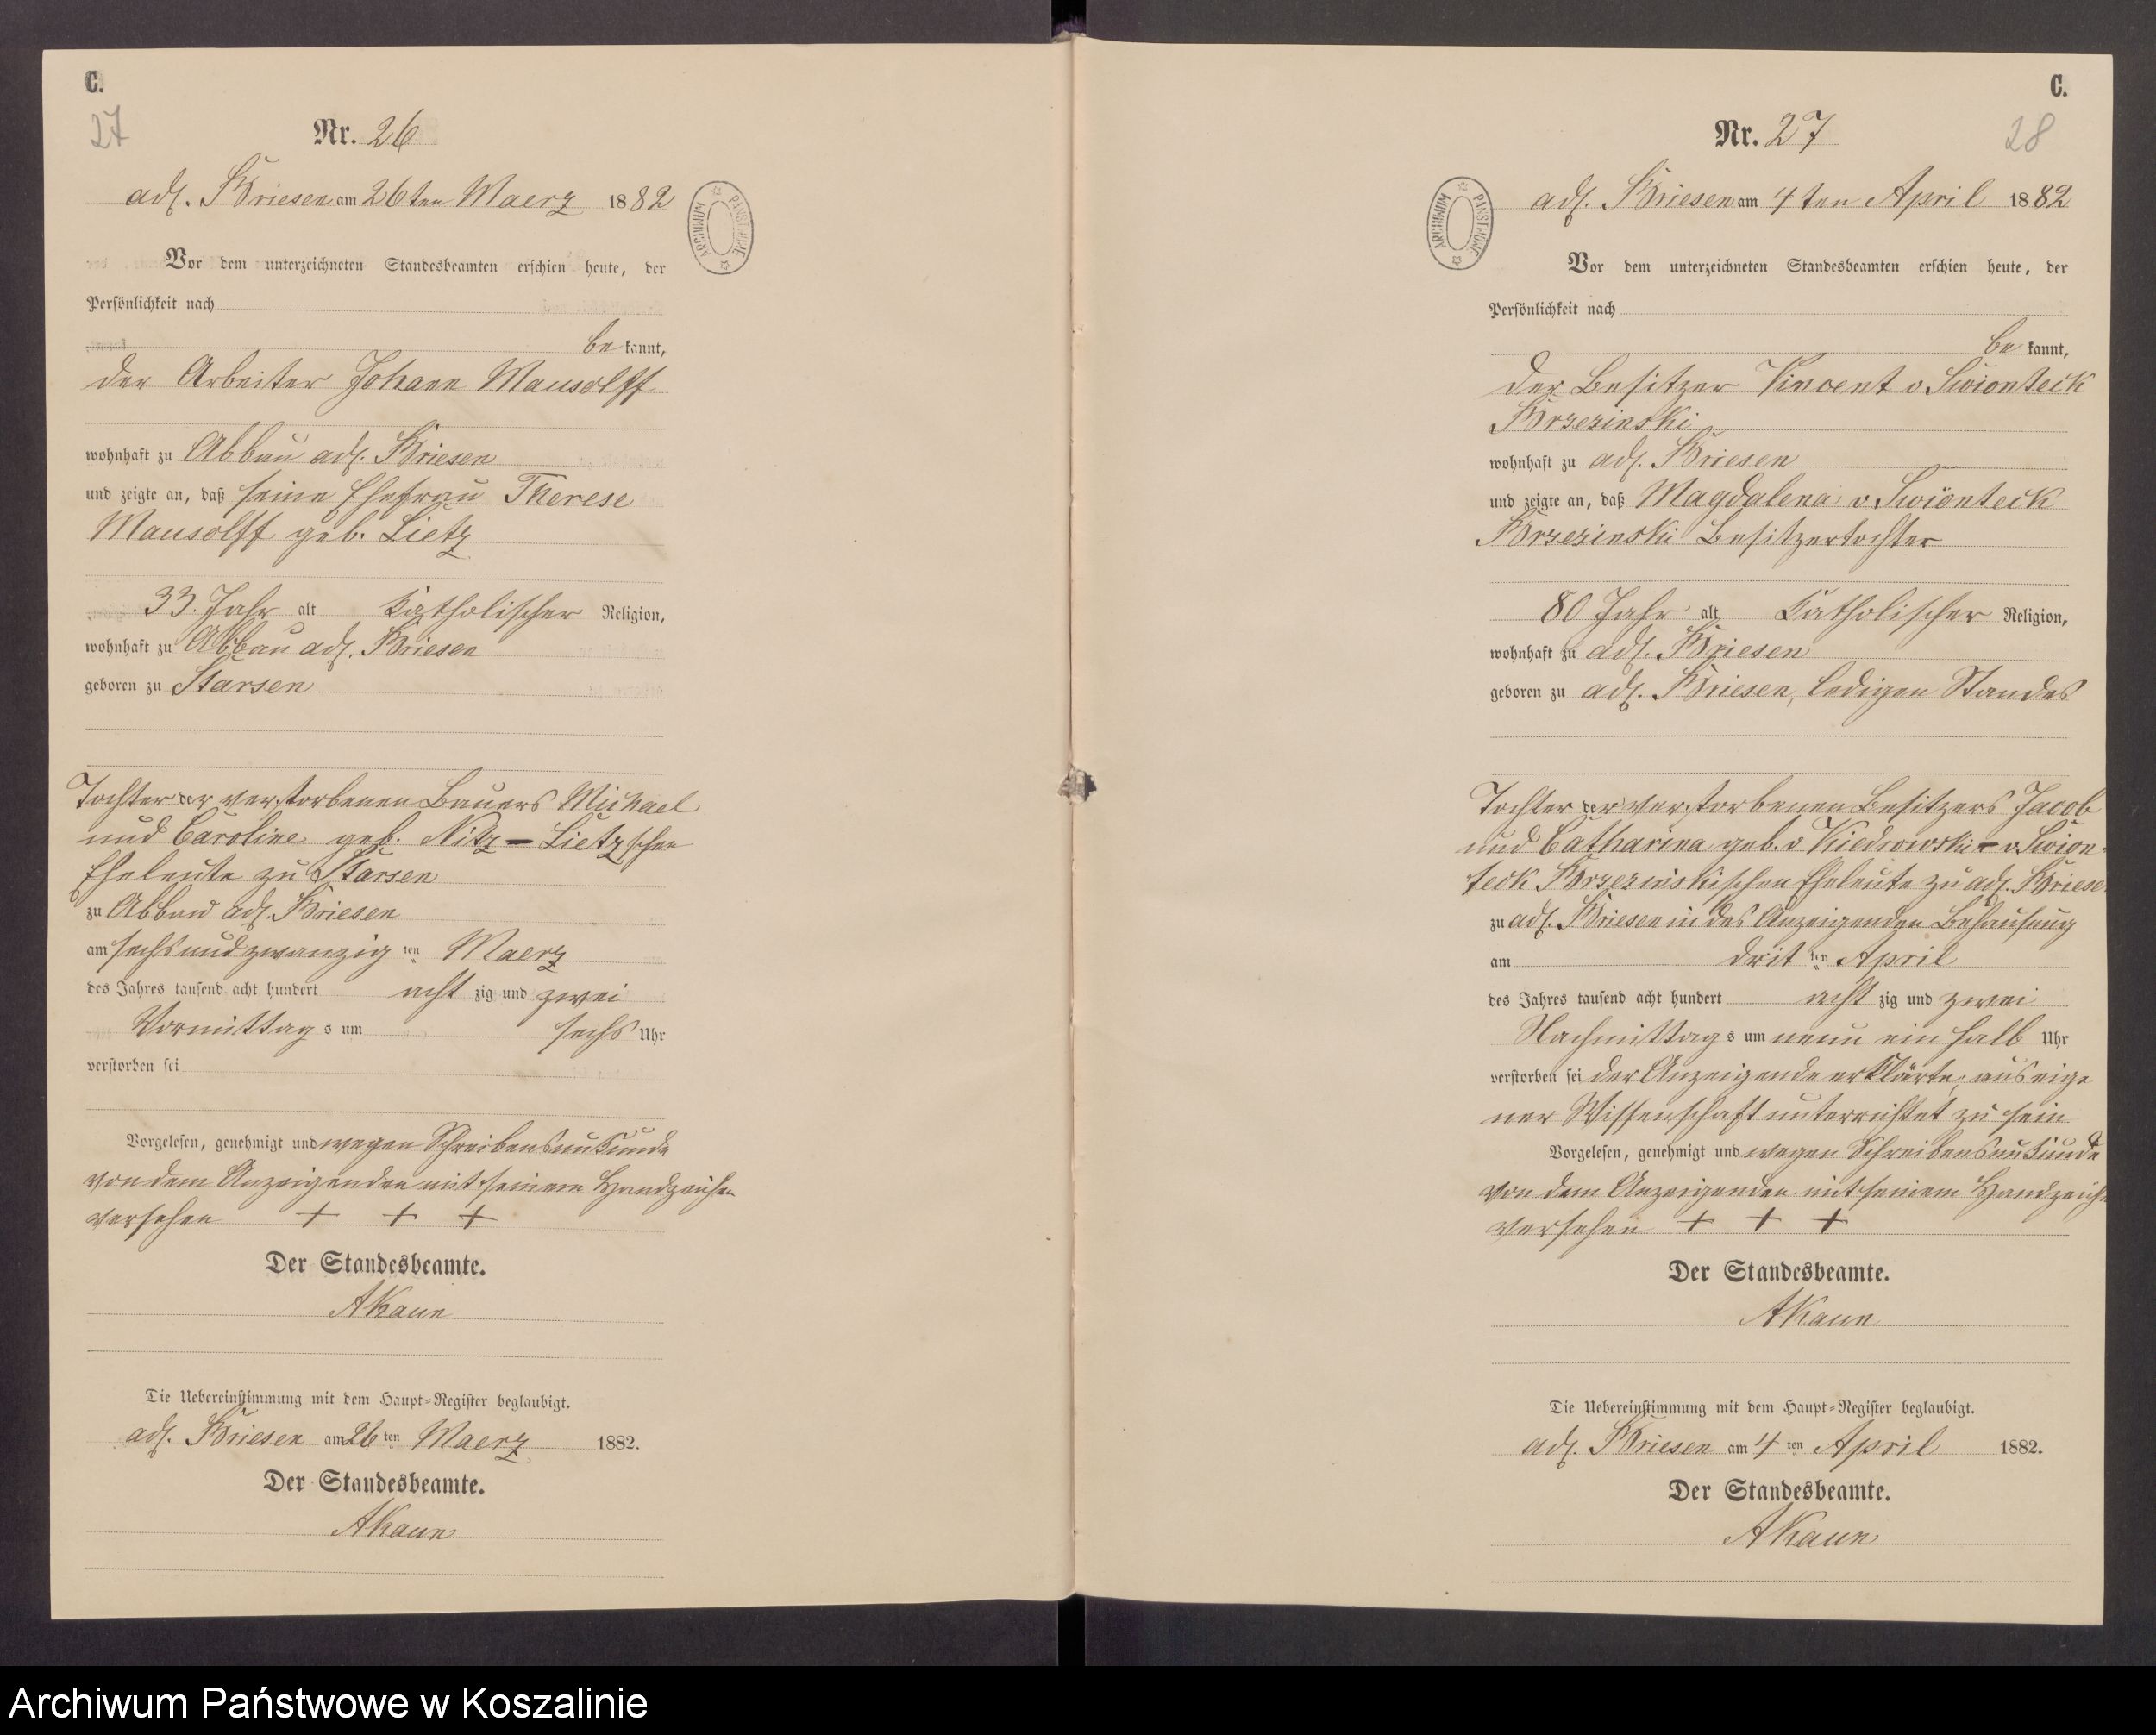 C.
27
Nr. 26
adl. Briesen am 26ten Maerz 1882
ARCHIWUM PAŃSTWOWE
Vor dem unterzeichneten Standesbeamten erschien heute, der
Persönlichkeit nach
be kannt,
der Arbeiter Johann Mausolff
wohnhaft zu Abbau adl. Briesen
und zeigte an, daß seine Ehefrau Therese
Mausolff geb. Lietz
33. Jahr alt katholischer Religion,
wohnhaft zu Abbau adl. Briesen
geboren zu Starsen
Tochter der verstorbenen Bauers Michael
und Caroline geb. Nitz - Lietzschen
Eheleute zu Starsen
zu Abbau adl. Briesen
am sechsundzwanzig ten Maerz
des Jahres tausend acht hundert acht zig und zwei
Vormittag s um sechs Uhr
verstorben sei
Vorgelesen, genehmigt und wegen Schreibensunkunde
von dem Anzeigenden mit seinem Handzeichen
versehen + + +
Der Standesbeamte.
AKaun
Die Uebereinstimmung mit dem Haupt-Register beglaubigt.
adl. Briesen am 26 ten Maerz 1882.
Der Standesbeamte.
AKaun
C.
28
Nr. 27
adl. Briesen am 4ten April 1882
ARCHIWUM PAŃSTWOWE
Vor dem unterzeichneten Standesbeamten erschien heute, der
Persönlichkeit nach
be kannt,
der Besitzer Vincent v Swionteck
Brzezinski
wohnhaft zu adl. Briesen
und zeigte an, daß Magdalena v Swionteck
Brzezinski Besitzertochter
80 Jahr alt Catholischer Religion,
wohnhaft zu adl. Briesen
geboren zu adl. Briesen, ledigen Standes
Tochter der verstorbenen Besitzers Jacob
und Catharina geb. v Kiedrowski - v. Swion-
teck Brzezinskischen Eheleute zu adl. Briesen
zu adl. Briesen in des Anzeigenden Behausung
am drit ten April
des Jahres tausend acht hundert acht zig und zwei
Nachmittag s um neun ein halb Uhr
verstorben sei der Anzeigende erklärte, aus eige
ner Wissenschaft unterrichtet zu sein
Vorgelesen, genehmigt und wegen Schreibensunkunde
von dem Anzeigenden mit seinem Handzeichen
versehen + + +
Der Standesbeamte.
AKaun
Die Uebereinstimmung mit dem Haupt-Register beglaubigt.
adl. Briesen am 4 ten April 1882.
Der Standesbeamte.
AKaun
Archiwum Państwowe w Koszalinie